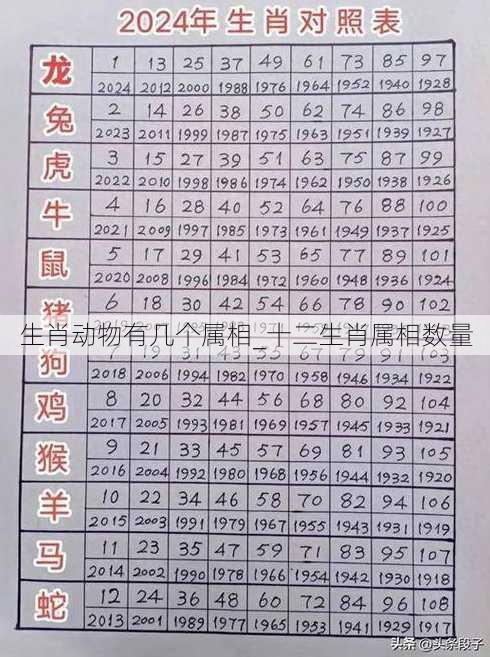 2024年生肖对照表
龙 1 13 25 37 49 61 73 85 97
2024 2012 2000 1988 1976 1964 1952 1940 1928
兔 2 14 26 38 50 62 74 86 98
2023 2011 1999 1987 1975 1963 1951 1939 1927
虎 3 15 27 39 51 63 75 87 99
2022 2010 1998 1986 1974 1962 1950 1938 1926
牛 4 16 28 40 52 64 76 88 100
2021 2009 1997 1985 1973 1961 1949 1937 1925
鼠 5 17 29 41 53 65 77 89 101
2020 2008 1996 1984 1972 1960 1948 1936 1924
猪 6 18 30 42 54 66 78 90 102
生肖动物有几个属相_十二生肖属相数量
狗
2018 2006 1994 1982 1970 1958 1946 1934 1922
鸡 8 20 32 44 56 68 80 92 104
2017 2005 1993 1981 1969 1957 1945 1933 1921
猴 9 21 33 45 57 69 81 93 105
2016 2004 1992 1980 1968 1956 1944 1932 1920
羊 10 22 34 46 58 70 82 94 106
2015 2003 1991 1979 1967 1955 1943 1931 1919
马 11 23 35 47 59 71 83 95 107
2014 2002 1990 1978 1966 1954 1942 1930 1918
蛇 12 24 36 48 60 72 84 96 108
2013 2001 1989 1977 1965 1953 1941 1929 1917
头条 @头条段子